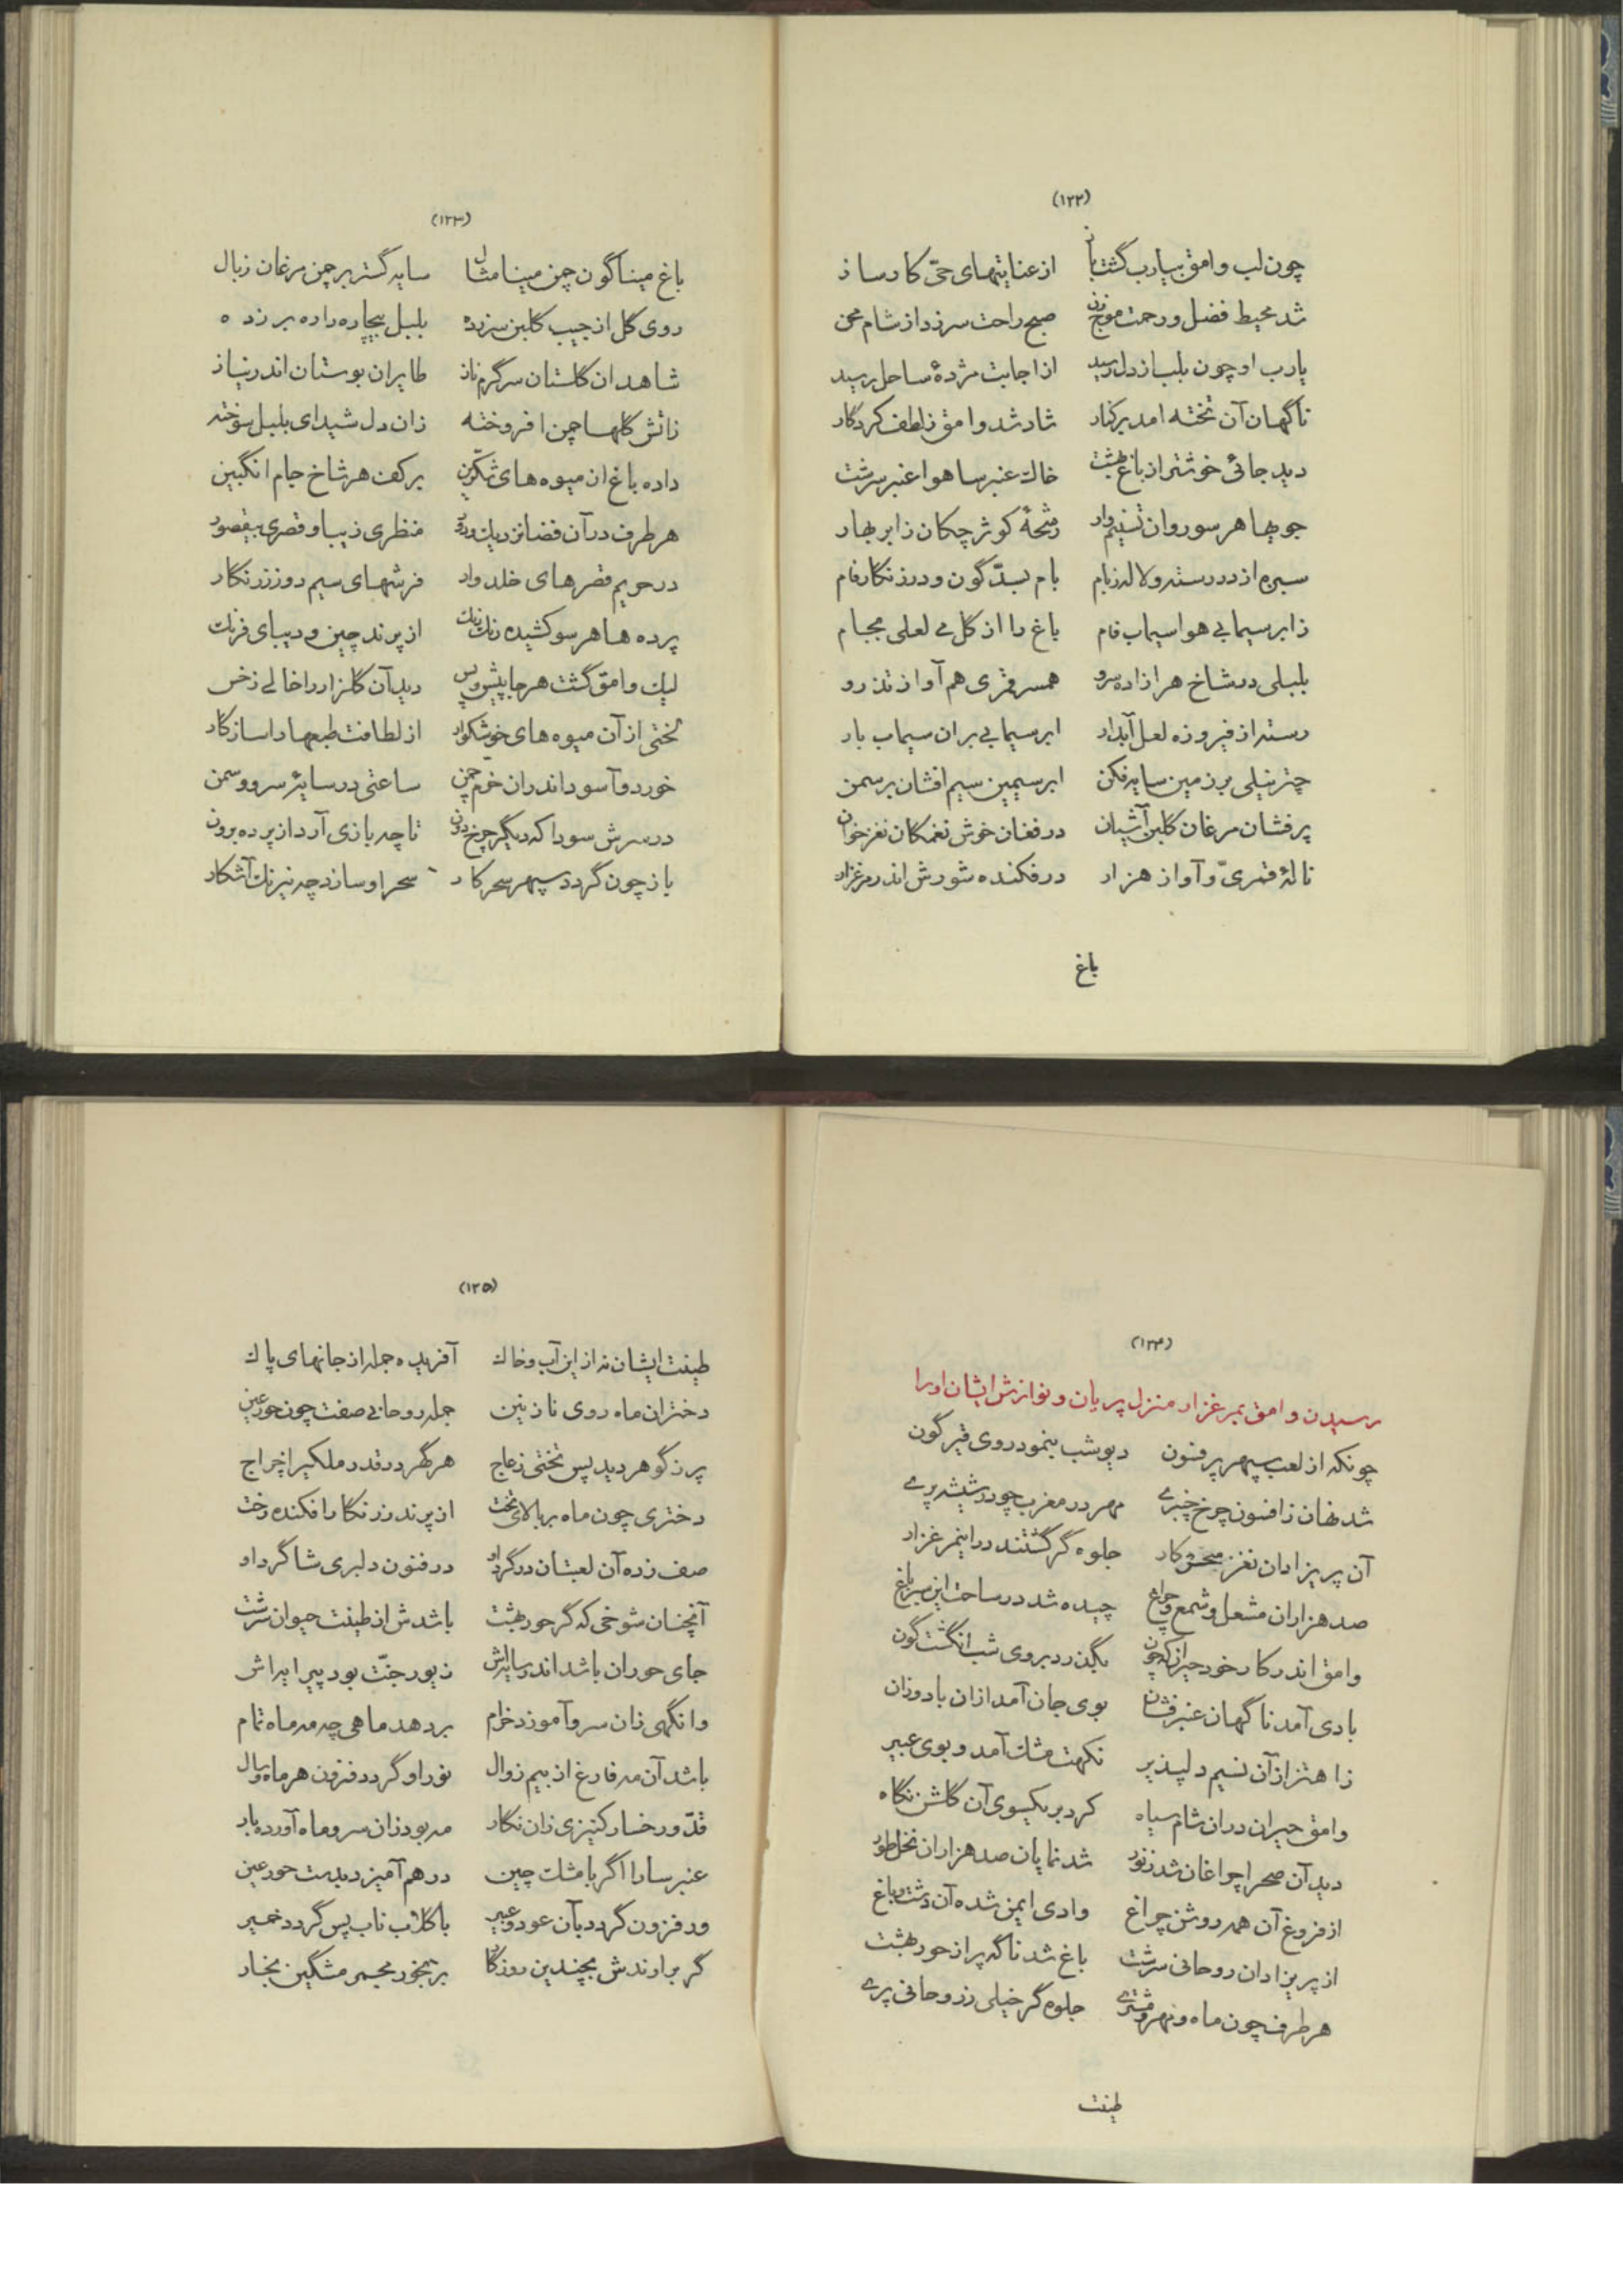 (۱۲۲)
چون لب وامق بیارب گشت باز از عنایتهای حقّ کارساز
شد محیط فضل و رحمت موج زن صبح راحت سر زد از شام محن
یارب او چون بلب از دل رسید از اجابت مژدهٔ ساحل رسید
ناگهان آن تخته امد بر کنار شاد شد وامق ز لطف کردگار
دید جائی خوشتر از باغ بهشت خاک عنبرسا هوا عنبر سرشت
جویها هر سو روان تسنیم وار رشحهٔ کوثر چکان ز ابر بهار
سبزه از در رسته و لاله ز بام بام بسدّگون و در زنگارفام
ز ابر سیمابی هوا سیماب فام باغ را از گل می لعلی بجام
بلبلی در شاخ هر ازاده سرو همسر قمری هم آواز تذرو
رسته از فیروزه لعل آبدار ابر سیمابی بران سیماب بار
چتر نیلی بر زمین سایه فکن ابر سیمین سیم افشان بر سمن
پرفشان مرغان گلبن آشیان در فغان خوش نغمگان نغز خوان
نالهٔ قمریّ و آواز هزار در فکنده شورش اندر مرغزار
باغ
(۱۲۳)
باغ میناگون چمن مینا مثال سایه گستر بر چمن مرغان ز بال
روی گل از جیب گلبن سر زده بلبل بیچاره را ره بر زده
شاهدان گلستان سرگرم ناز طایران بوستان اندر نیاز
ز اتش گلها چمن افروخته زان دل شیدای بلبل سوخته
داده باغ ان میوه های شکّرین بر کف هر شاخ جام انگبین
هر طرف در آن فضا نزدیک و دور منظری زیبا و قصری بیقصور
در حریم قصرهای خلد وار فرشهای سیم دوز زرنگار
پرده ها هر سو کشیده رنگ رنگ از پرند چین و دیبای فرنگ
لیک وامق گشت هر جا پیش و پس دید آن گلزار را خالی ز خس
لختی از آن میوه های خوشگوار از لطافت طبعها را سازگار
خورد و آسود اندران خرم چمن ساعتی در سایهٔ سرو و سمن
در سرش سودا که دیگر چرخ دون تا چه بازی آرد از پرده برون
باز چون گردد سپهر سحرکار سحر او سازد چه نیرنگ آشکار
(۱۲۴)
رسیدن وامق بمرغزار منزل پریان و نوازش ایشان اورا
چونکه از لعب سپهر پر فنون دیو شب بنمود روی قیرگون
شد نهان ز افسون چرخ چنبری مهر در مغرب چو در شیشه پری
آن پریزادان نغز سحرکار جلوه گر گشتند در این مرغزار
صد هزاران مشعل و شمع و چراغ چیده شد در ساحت این سبز باغ
وامق اندر کار خود حیران که چون بگذرد بروی شب انگشت گون
بادی آمد ناگهان عنبر فشان بوی جان آمد ازان باد وزان
ز اهتزاز آن نسیم دلپذیر نکهت مشک آمد و بوی عبیر
وامق حیران دران شام سیاه کرد بر یکسوی آن گلشن نگاه
دید آن صحرا چراغان شد ز نور شد نمایان صد هزاران نخل طور
از فروغ آن همه روشن چراغ وادی ایمن شده آن دشت و باغ
از پریزادان روحانی سرشت باغ شد ناگه پر از حور بهشت
هر طرف چون ماه و مهر و مشتری جلوه گر خیلی ز روحانی پری
طینت
(۱۲۵)
طینت ایشان نه از این آب و خاک آفریده جمله از جانهای پاک
دختران ماه روی نازنین جمله روحانی صفت چون حور عین
پر ز گوهر دید پس تختی ز عاج هر گهر در قدر ملکیرا خراج
دختری چون ماه بر بالای تخت از پرند زرنگار افکنده رخت
صف زده آن لعبتان در گرد او در فنون دلبری شاگرد او
آنچنان شوخی که گر حور بهشت باشدش از طینت حیوان سرشت
جای حوران باشد اندر سایه اش زیور جنّت بود پیرایه اش
وانگهی زان سرو آموزد خرام بر دهد ماهی چه مه ماه تمام
باشد آن مه فارغ از بیم زوال نور او گردد فزون هر ماه و سال
قدّ و رخسار کنیزی زان نگار مه بود زان سرو ماه آورده بار
عنبر سارا اگر با مشک چین در هم آمیزد بدست حور عین
ور فزون گردد بآن عود و عبیر با گلاب ناب پس گردد خمیر
گر برارندش بچندین روزگار بر بخور مجمر مشگین بخار